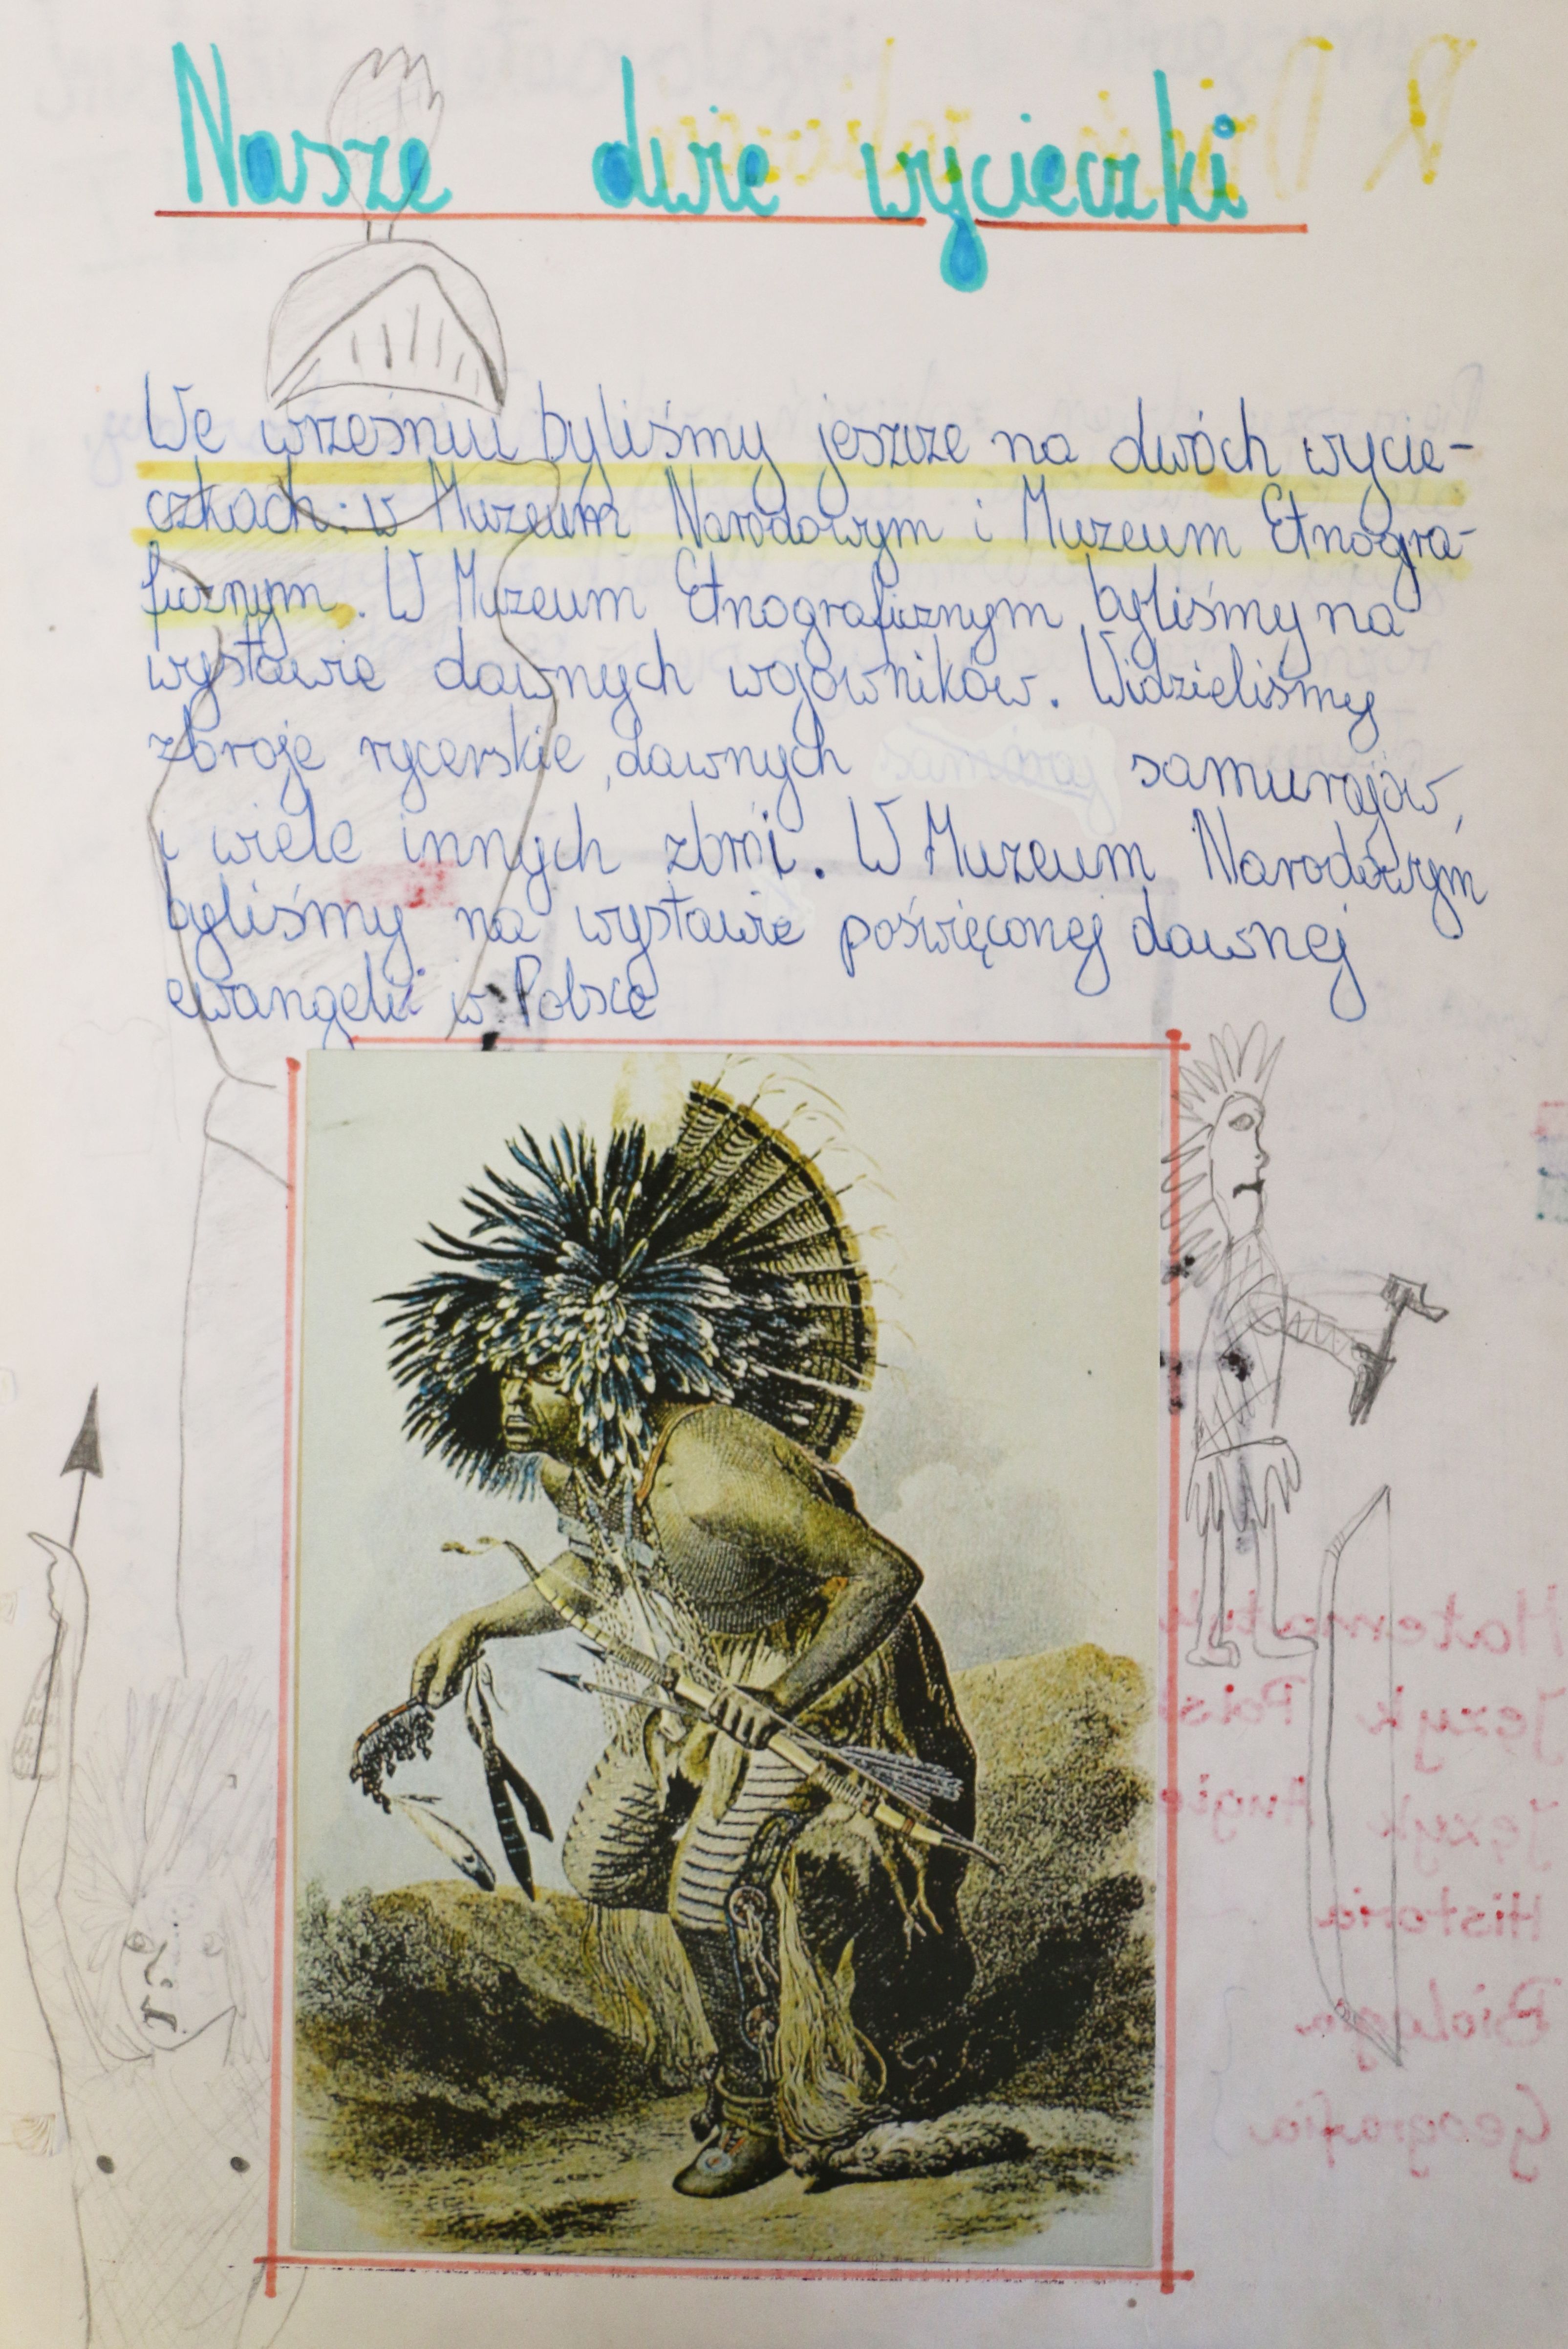 Nasze dwie wycieczki
We wrześniu byliśmy jeszcze na dwóch wycie-
czkach: w Muzeum Narodowym i Muzeum Etnogra-
ficznym. W Muzeum Etnograficznym byliśmy na
wystawie dawnych wojowników. Widzieliśmy
zbroje rycerskie, dawnych samurajów,
i wiele innych zbroi. W Muzeum Narodowym
byliśmy na wystawie poświęconej dawnej
ewangelii w Polsce
Język Pols
Język Angie
Historia
Biologia
Geografia